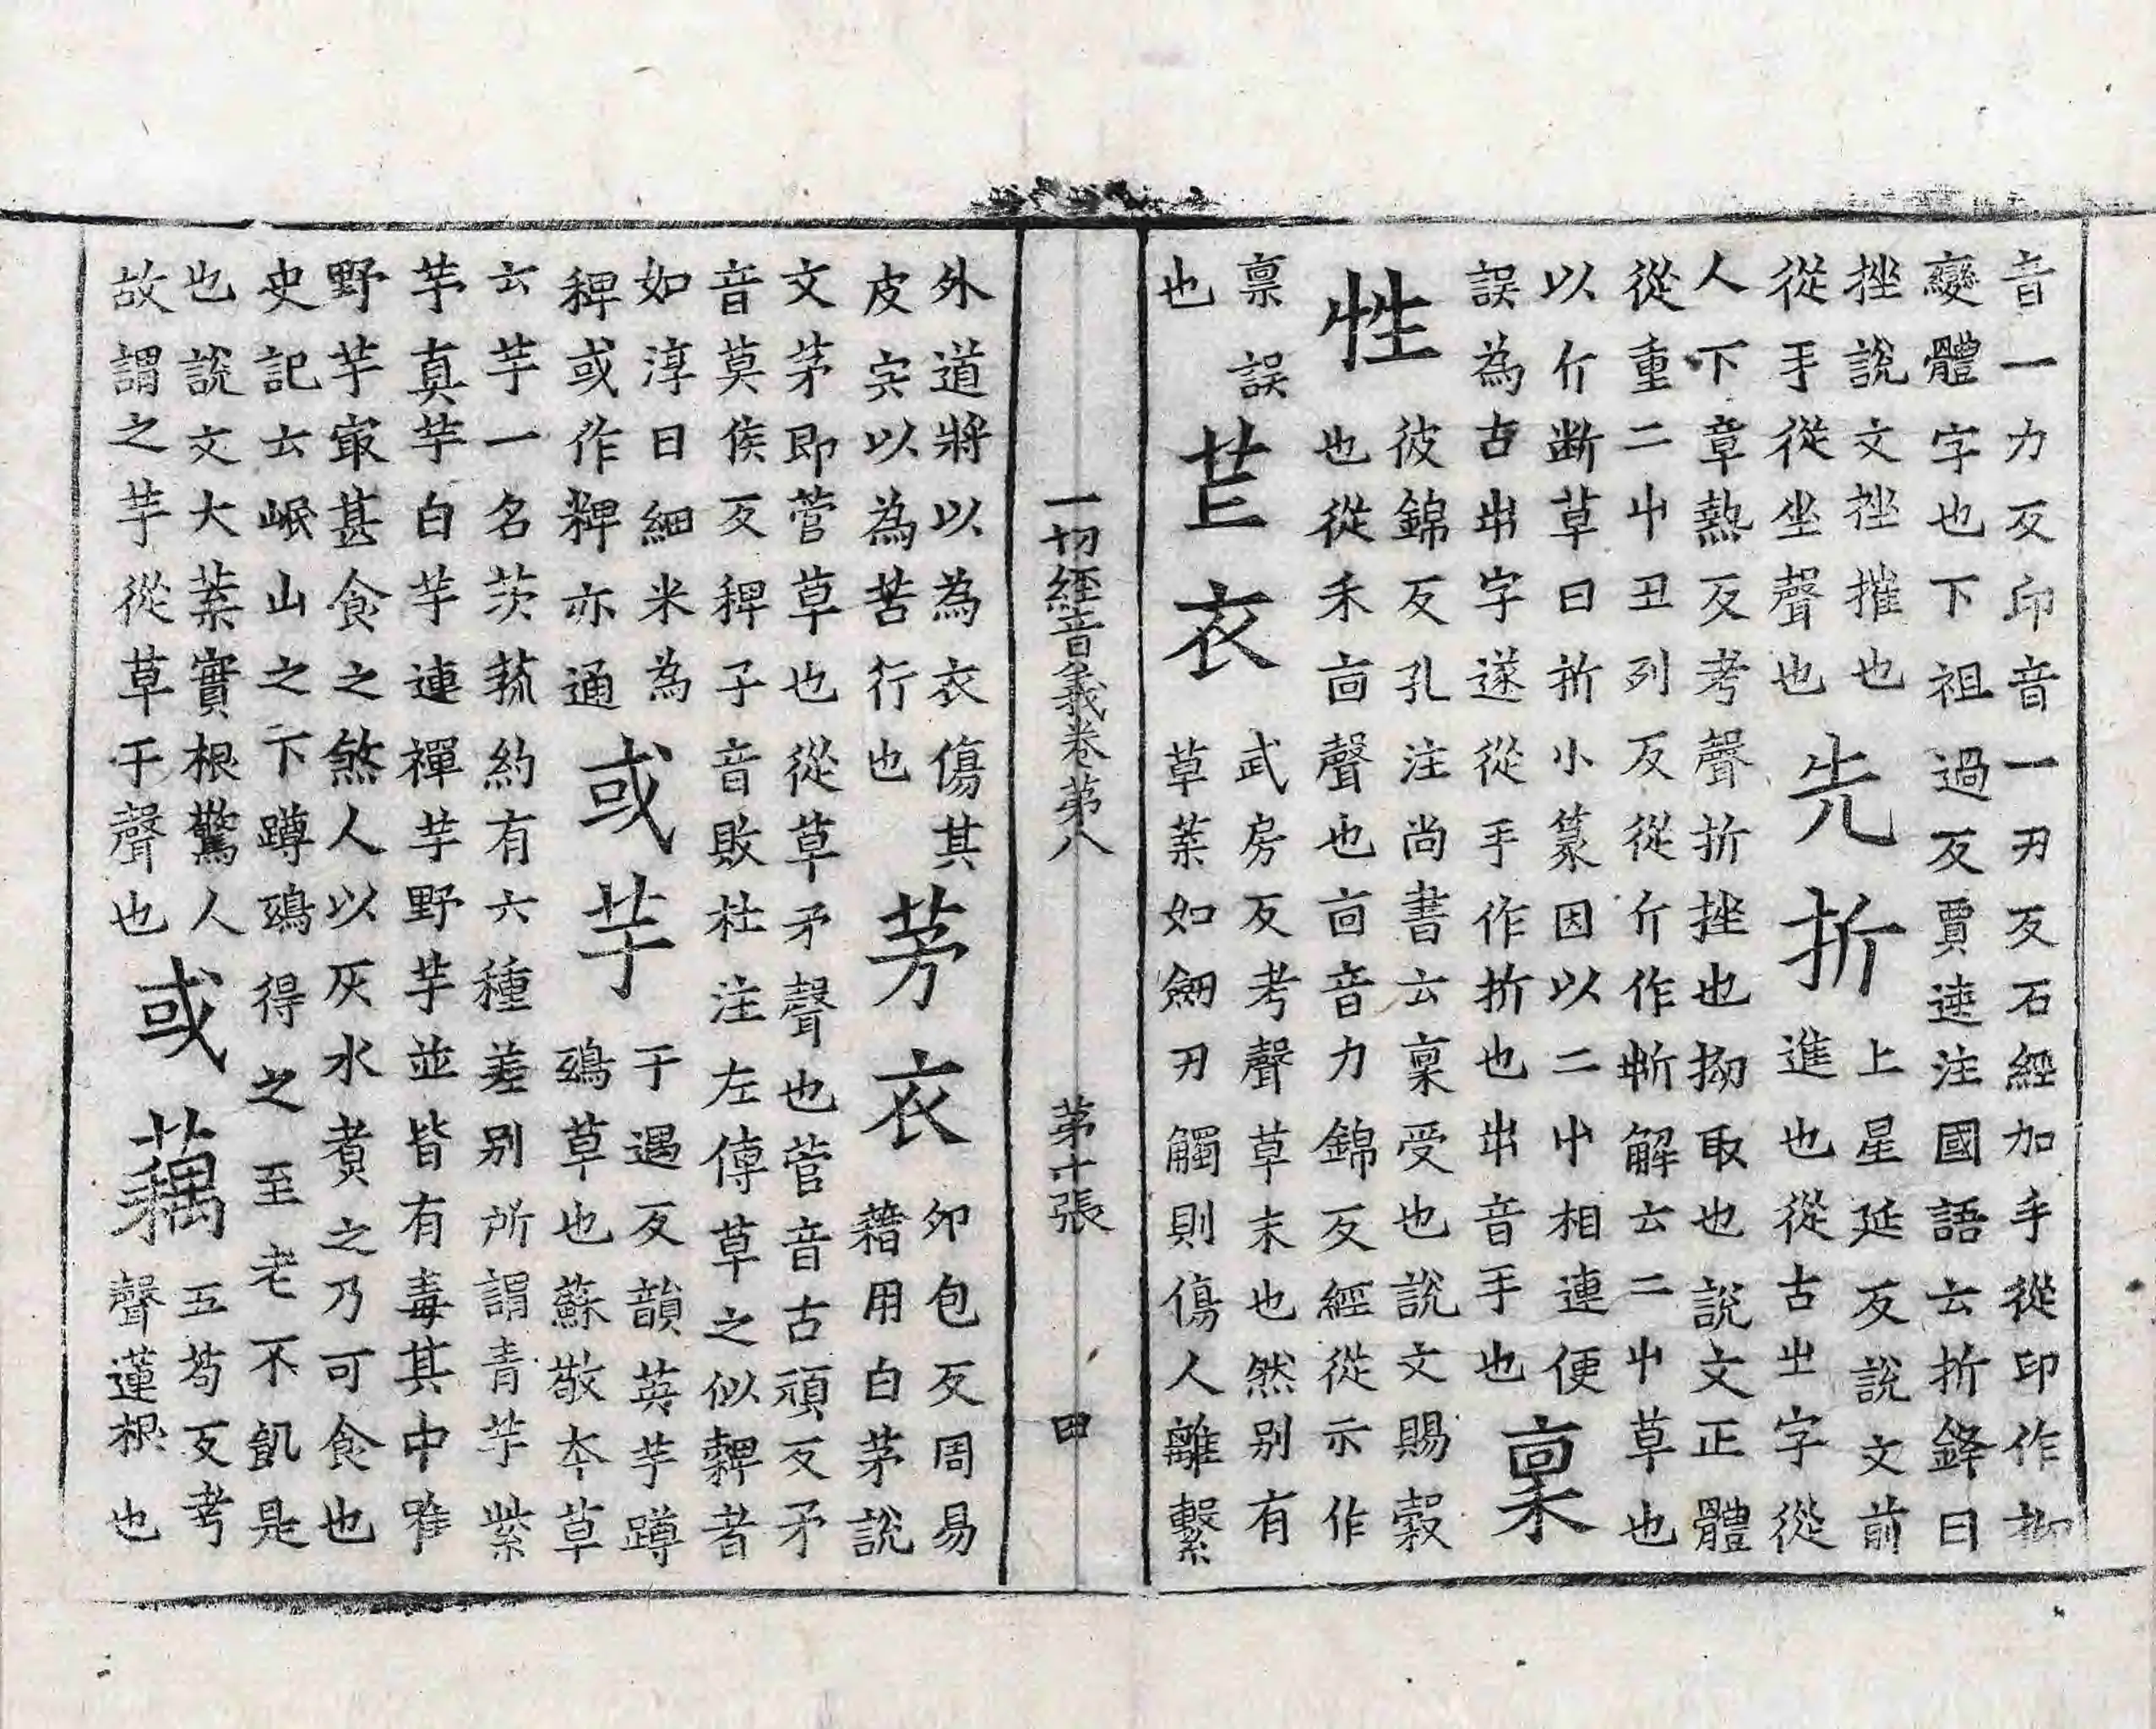 音一力反印音一刃反石經加手從印作抑
變體字也下祖過反賈逵注國語云折鋒曰
挫說文挫摧也
從手從坐聲也
先折
上星延反說文前
進也從古㞢字從
人下章熱反考聲折挫也拗取也說文正體
從重二屮丑列反從斤作𣂚解云二屮草也
以斤断草曰折小篆因以二屮相連便
誤為古𡴆字遂從手作折也𡴆音手也
稟
性
彼錦反孔注尚書云稟受也說文賜穀
也從禾㐭聲也㐭音力錦反經從示作
禀誤
也
芒衣
武房反考聲草末也然别有
草葉如劒刃觸則傷人離繫
一切經音義卷苐八 苐十張 田
外道將以為衣傷其
皮宍以為苦行也
茅衣
卯包反周易
藉用白茅說
文茅即菅草也從草矛聲也菅音古頑反矛
音莫侯反稗子音敗杜注左傳草之似穀者
如淳曰細米為
稗或作粺亦通
或芋
于遇反韻英芋蹲
鵄草也蘇敬本草
云芋一名茨菰約有六種差别所謂青芋紫
芋真芋白芋連禪芋野芋並皆有毒其中唯
野芋㝡甚食之煞人以灰水煑之乃可食也
史記云岷山之下蹲鵄得之至老不飢是
也說文大葉實根驚人
故謂之芋從草于聲也
或藕
五苟反考
聲蓮根也